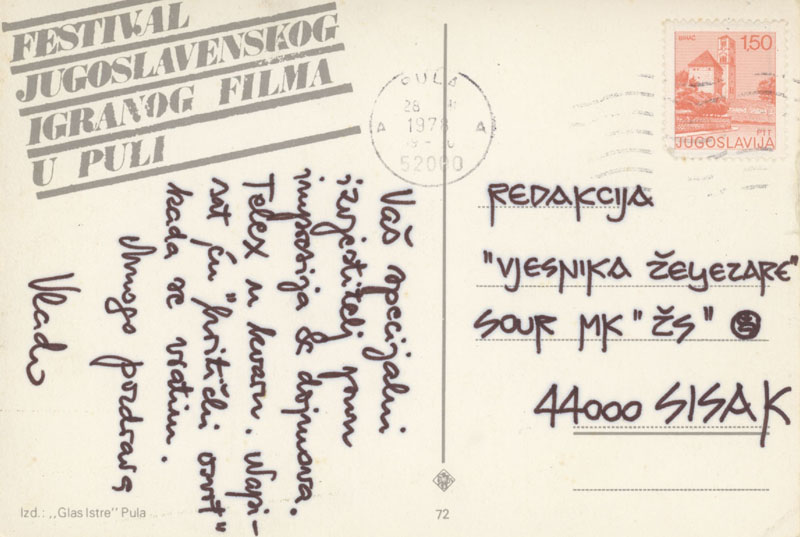 FESTIVAL
JUGOSLAVENSKOG
IGRANOG FILMA
U PULI
PULA
28
1978
A A
52000
BIHAĆ 1,50
PTT
JUGOSLAVIJA
Vaš specijalni
izvjestitelj puun
impresija & dojmova.
Telex u kvaru. Napi-
sat ću "kritički osvrt"
kada se vratim.
Mnogo pozdrava
Vlado
REDAKCIJA
"VJESNIKA ŽELJEZARE"
SOUR MK "ŽS"
44000 SISAK
Izd.: „Glas Istre" Pula
72